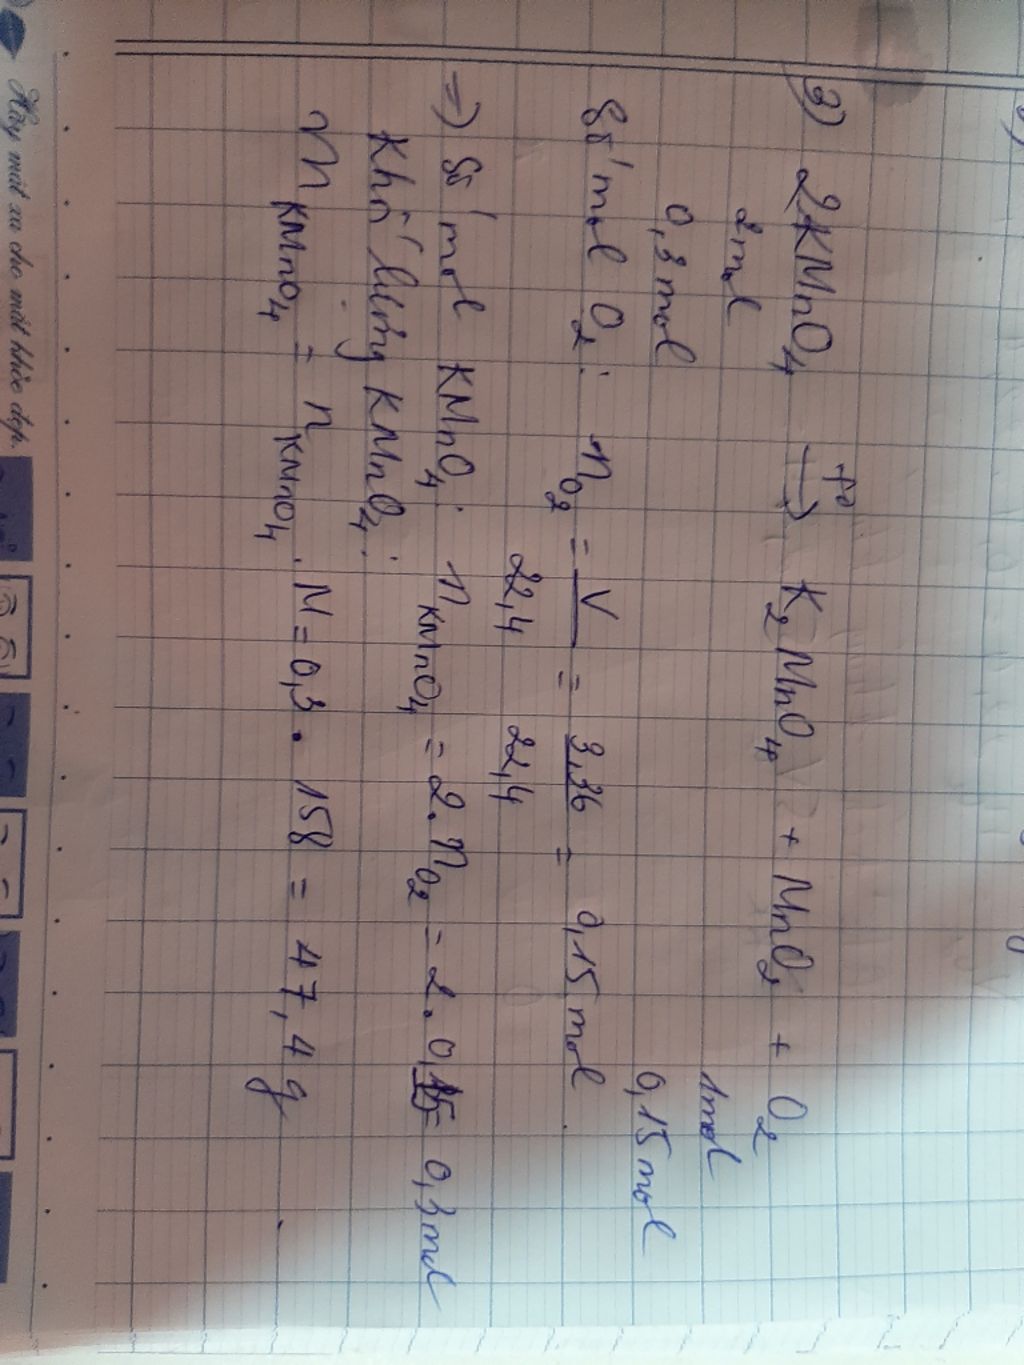 3) 2KMnO4 t° → K2MnO4 + MnO2 + O2
2mol 1mol
0,3mol 0,15mol
Số mol O2: nO2 = V/22,4 = 3,36/22,4 = 0,15 mol
=) Số mol KMnO4: nKMnO4 = 2.nO2 = 2.0,15 = 0,3mol
Khối lượng KMnO4:
mKMnO4 = nKMnO4 . M = 0,3 . 158 = 47,4 g
Hãy mát xa cho mắt khỏe đẹp.